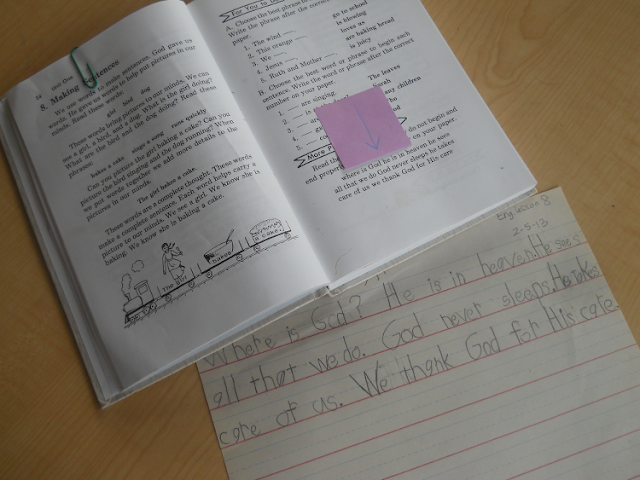 24 Unit One
8. Making Sentences
We use words to make sentences. God gave us
words. He gave us words to help put pictures in our
minds. Read these words.
girl bird dog
These words bring pictures to our minds. We can
see a girl, a bird, and a dog. What is the girl doing?
What are the bird and the dog doing? Read these
phrases.
bakes a cake sings a song runs quickly
Can you picture the girl baking a cake? Can you
picture the bird singing and the dog running? When
we put words together we add more details to the
pictures in our minds.
The girl bakes a cake.
These words are a complete thought. These words
make a complete sentence. Each word helps carry a
picture to our minds. We see a girl. We know she is
baking. We know she is baking a cake.
The girl
bakes
For You to
A. Choose the best phrase to
Write the phrase after the correct
paper.
1. The wind
2. This orange
3. We
4. Jesus
5. Ruth and Mother
go to school
is blowing
loves us
are baking bread
is juicy
B. Choose the best word or phrase to begin each
sentence. Write the word or phrase after the correct
number on your paper.
1. are singing.
2.
3.
4.
5.
The leaves
Sarah
children
More
Read the
do not begin and
end properly
on your paper.
where is God he is in heaven he sees
all that we do God never sleeps he takes
care of us we thank God for His care
Eng. lesson 8
2-5-13
Where is God? He is in heaven. He sees
all that we do. God never sleeps. He takes
care of us. We thank God for His care